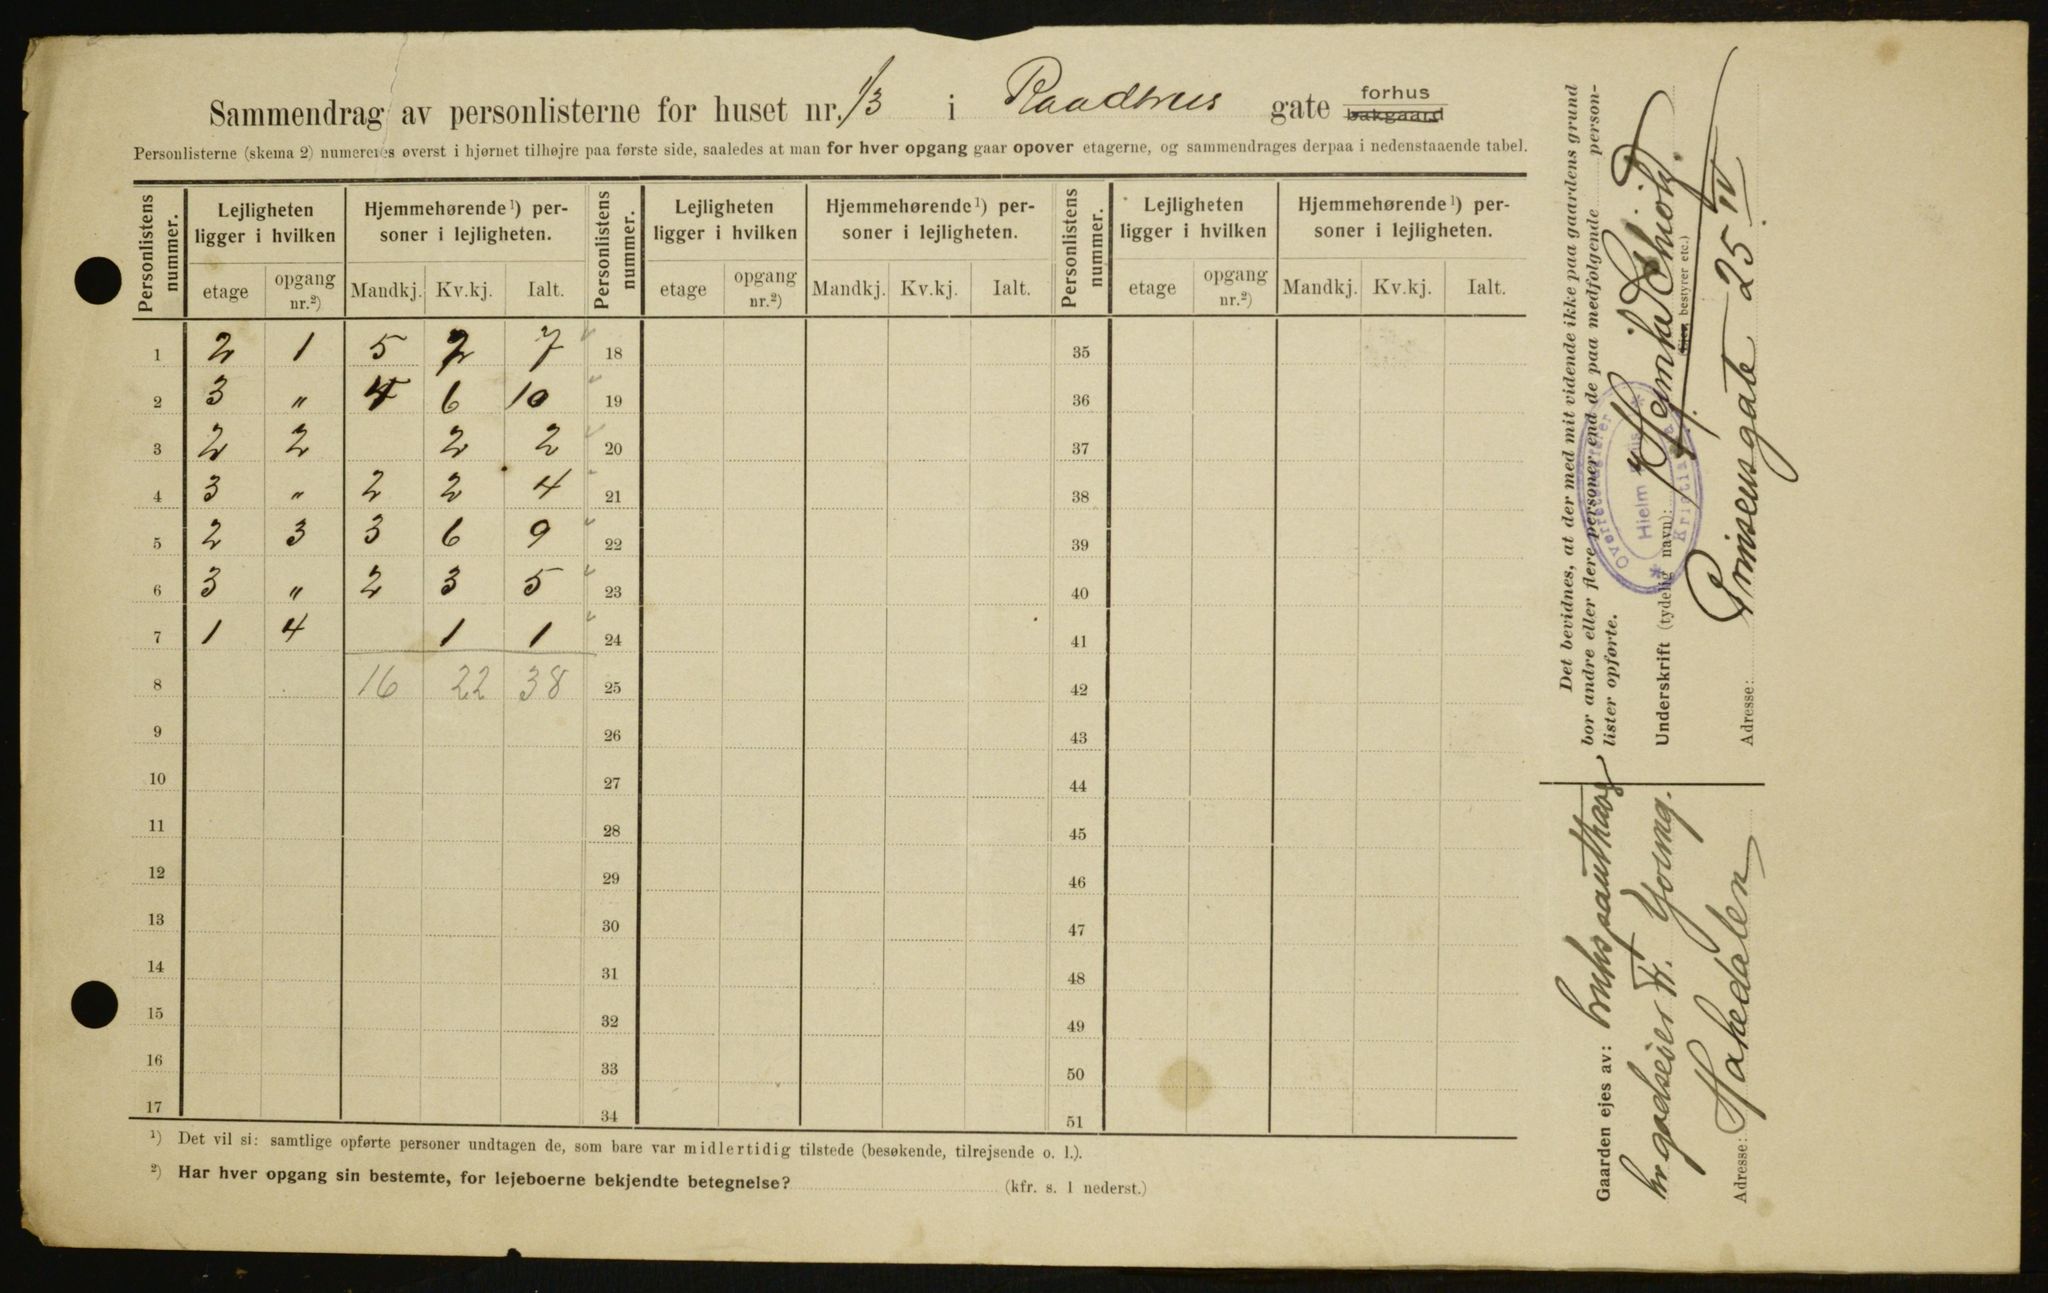 Sammendrag av personlisterne for huset nr. 13 i Raadhus gate forhus bakgaard
Personlisterne (skema 2) numereres øverst i hjørnet tilhøjre paa første side, saaledes at man for hver opgang gaar opover etagerne, og sammendrages derpaa i nedenstaaende tabel.
Personlistens nummer. Lejligheten ligger i hvilken Hjemmehørende¹) personer i lejligheten. Personlistens nummer. Lejligheten ligger i hvilken Hjemmehørende¹) personer i lejligheten. Personlistens nummer. Lejligheten ligger i hvilken Hjemmehørende¹) personer i lejligheten.
etage opgang nr.²) Mandkj. Kv.kj. Ialt. etage opgang nr.²) Mandkj. Kv.kj. Ialt. etage opgang nr.²) Mandkj. Kv.kj. Ialt.
1 2 1 5 2 7 18 35
2 3 " 4 6 10 19 36
3 2 2 2 2 20 37
4 3 " 2 2 4 21 38
5 2 3 3 6 9 22 39
6 3 " 2 3 5 23 40
7 1 4 1 1 24 41
8 16 22 38 25 42
9 26 43
10 27 44
11 28 45
12 29 46
13 30 47
14 31 48
15 32 49
16 33 50
17 34 51
¹) Det vil si: samtlige opførte personer undtagen de, som bare var midlertidig tilstede (besøkende, tilrejsende o. l.).
²) Har hver opgang sin bestemte, for lejeboerne bekjendte betegnelse? (kfr. s. 1 nederst.)
Det bevidnes, at der med mit vidende ikke paa gaardens grund
bor andre eller flere personer end de paa medfølgende person-
lister opførte.
Underskrift (tydelig navn):
(Eier, bestyrer etc.)
Adresse: Prinsensgate 25 IV
Gaarden ejes av:
hr. godseier Fr. Young.
Adresse: Hakedalen